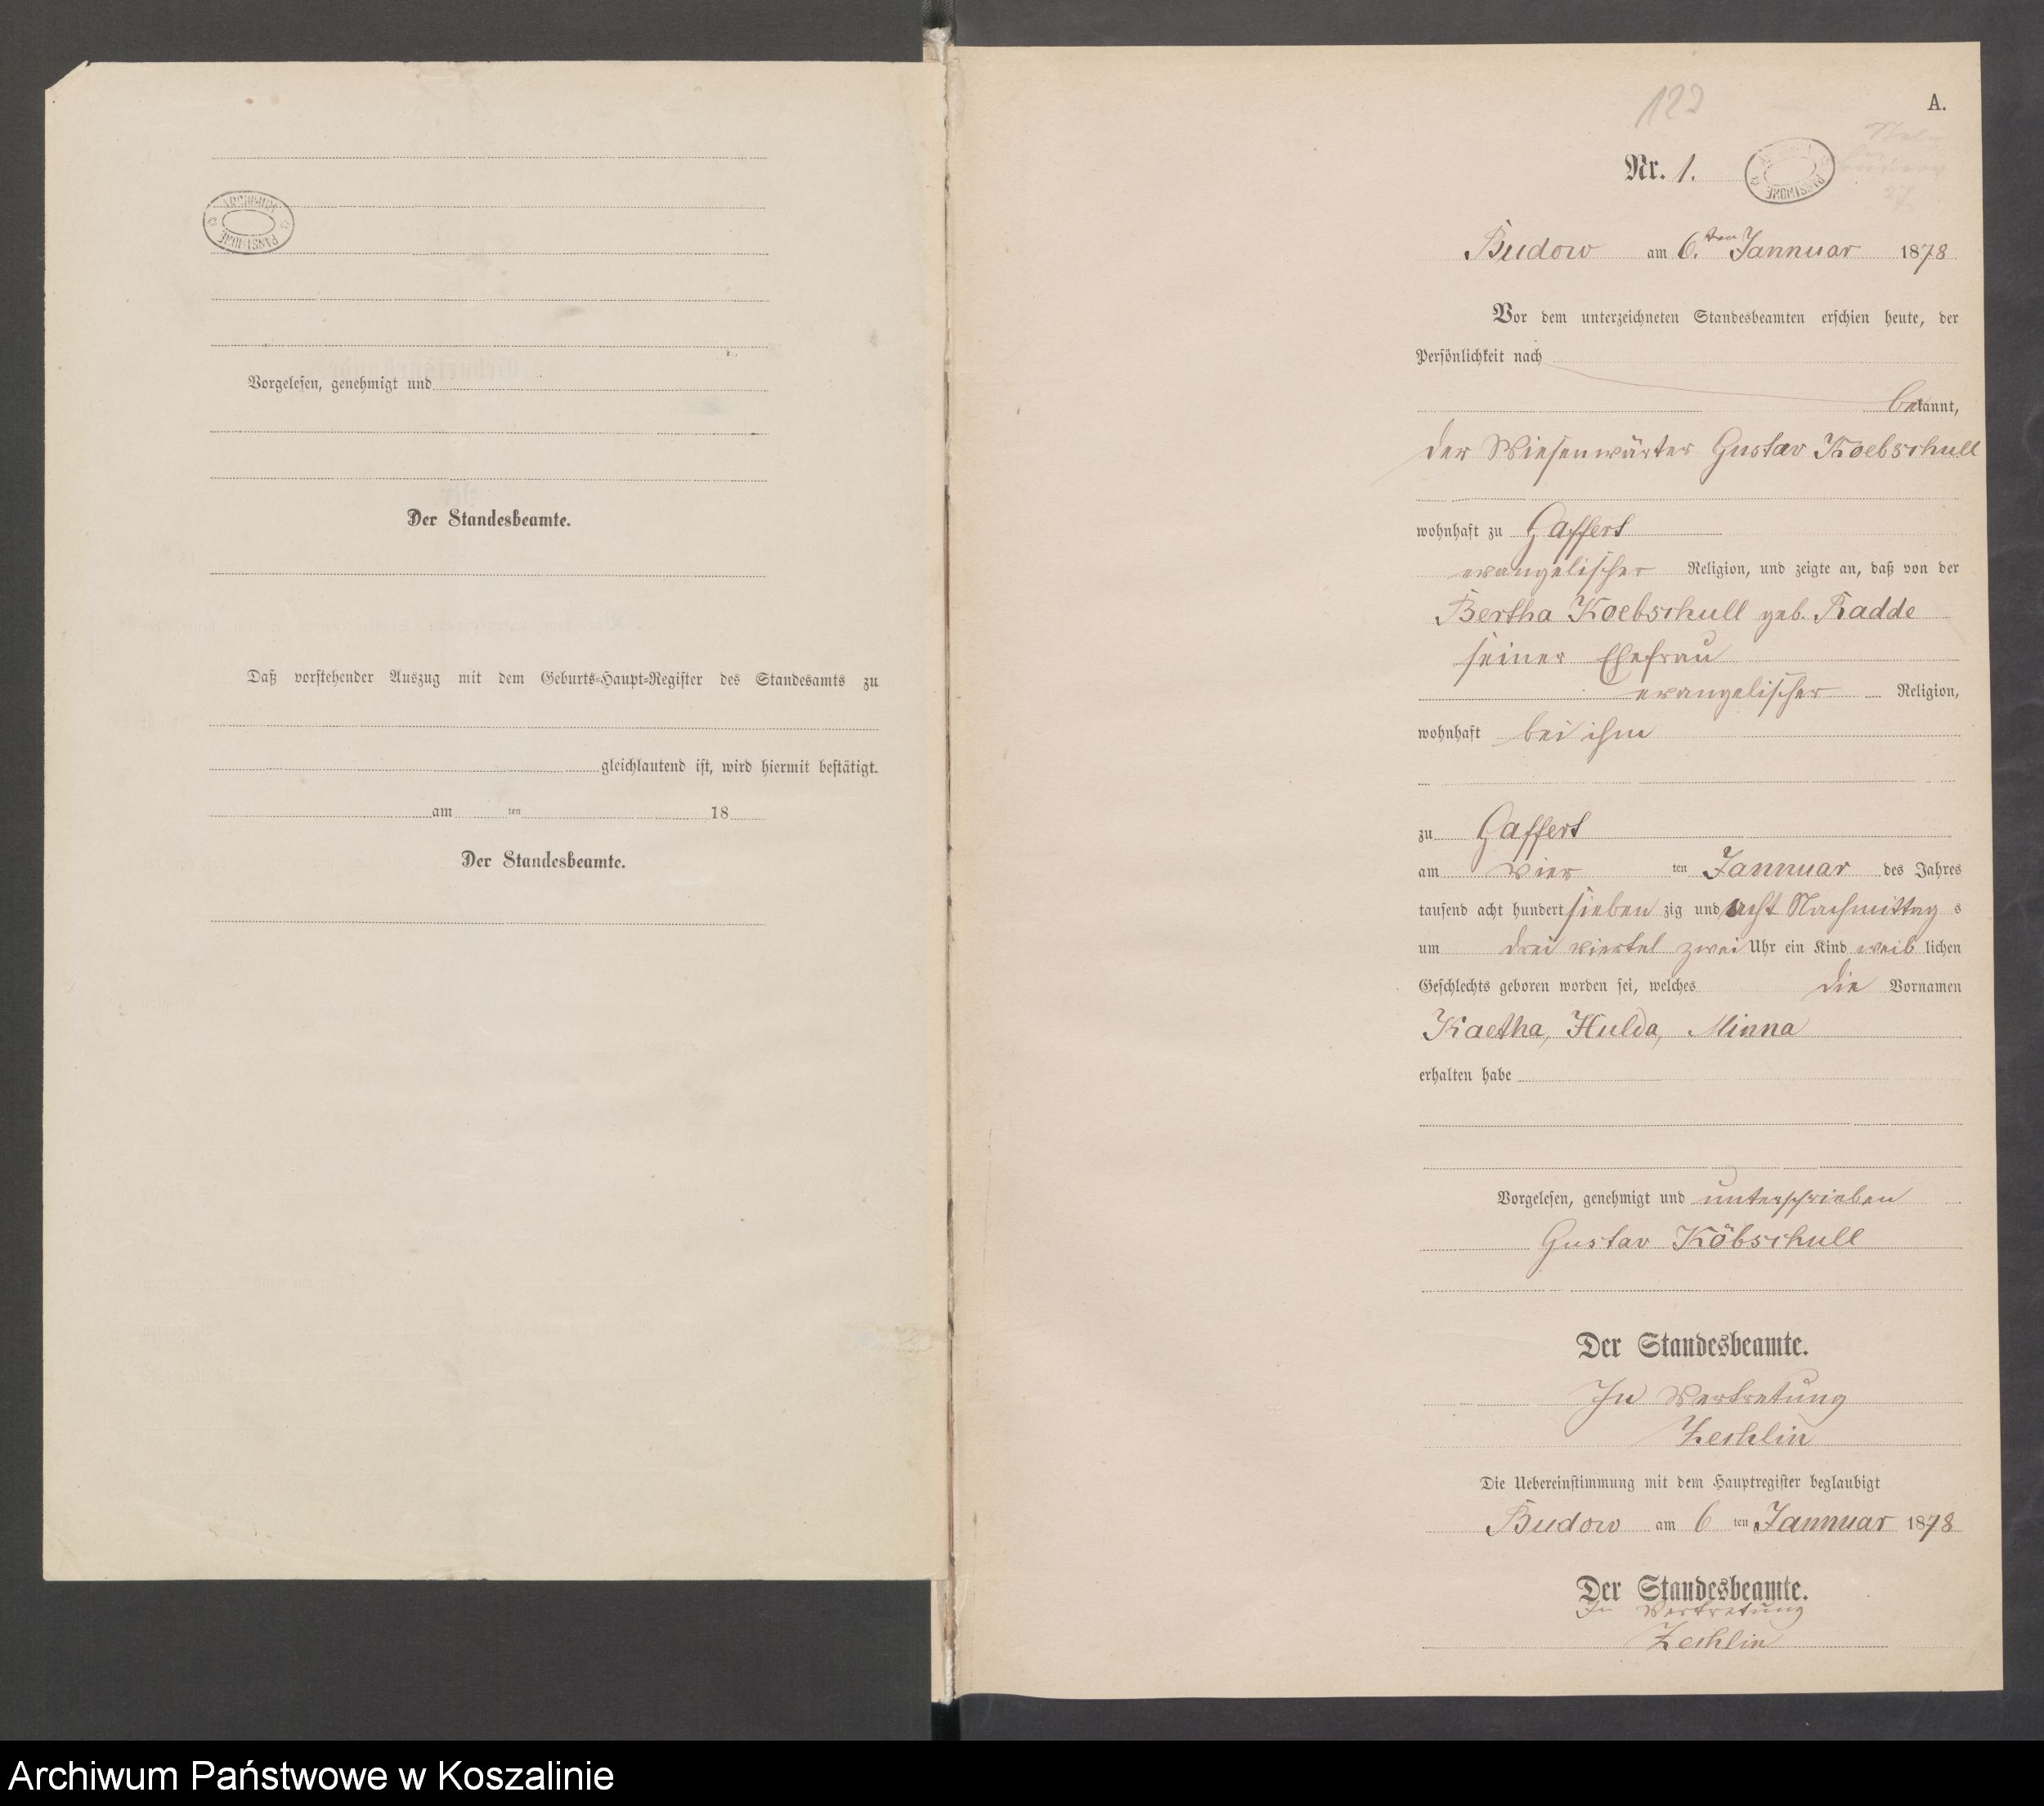 ARCHIWUM PAŃSTWOWE
Vorgelesen, genehmigt und
Der Standesbeamte.
Daß vorstehender Auszug mit dem Geburts-Haupt-Register des Standesamts zu
gleichlautend ist, wird hiermit bestätigt.
am ten 18
Der Standesbeamte.
A.
Nr. 1.
PAŃSTWOWE
Budow am 6.ten Jannuar 1878
Vor dem unterzeichneten Standesbeamten erschien heute, der
Persönlichkeit nach
bekannt,
der Wiesenwärter Gustav Koebschull
wohnhaft zu Gaffert
evangelischer Religion, und zeigte an, daß von der
Bertha Koebschull geb. Radde
seiner Ehefrau
evangelischer Religion,
wohnhaft bei ihm
zu Gaffert
am vier ten Jannuar des Jahres
tausend acht hundert sieben zig und acht Nachmittag s
um drei viertel zwei Uhr ein Kind weib lichen
Geschlechts geboren worden sei, welches die Vornamen
Kaetha, Hulda, Minna
erhalten habe
Vorgelesen, genehmigt und unterschrieben
Gustav Köbschull
Der Standesbeamte.
In Vertretung
Zechlin
Die Uebereinstimmung mit dem Hauptregister beglaubigt
Budow am 6 ten Jannuar 1878
Der Standesbeamte.
In Vertretung
Zechlin
Archiwum Państwowe w Koszalinie